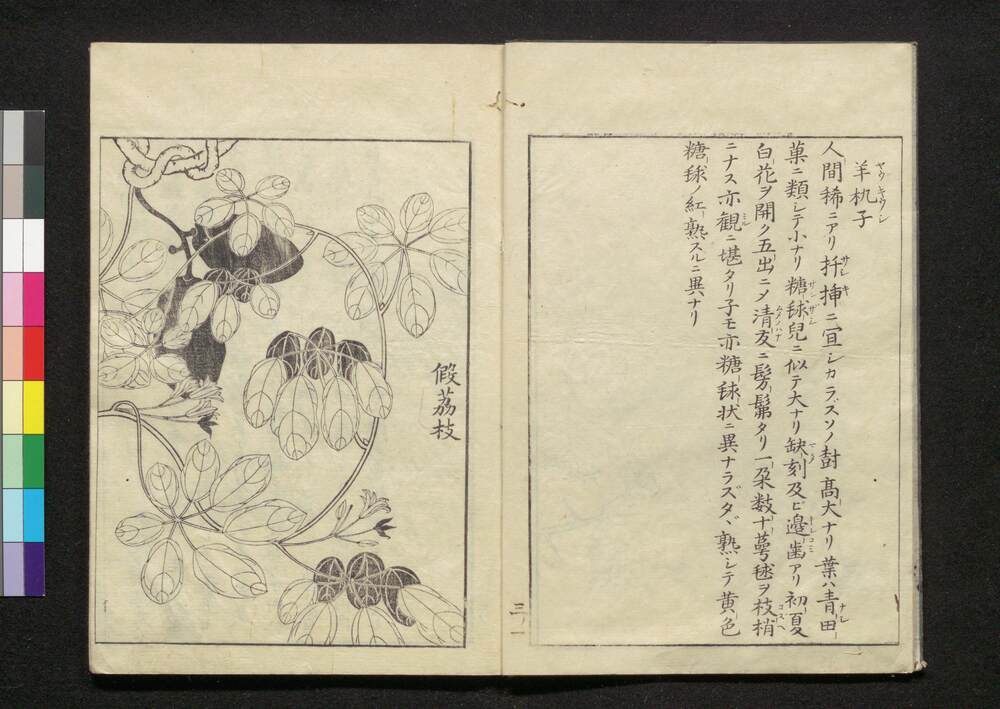 羊朹子
人間稀ニアリ扦揷ニ宜シカラズソノ樹髙大ナリ葉ハ青田
菓ニ類シテ小ナリ糖毬兒ニ似テ大ナリ缺刻及ビ邉歯アリ初夏
白花ヲ開ク五出ニメ清友ニ髣髴タリ一朶数十蕚毬ヲ枝梢
ニナス亦観ニ堪タリ子モ亦糖毬状ニ異ナラズタヾ熟シテ黄色
糖毬ノ紅熟スルニ異ナリ
假茘枝
三ノ一